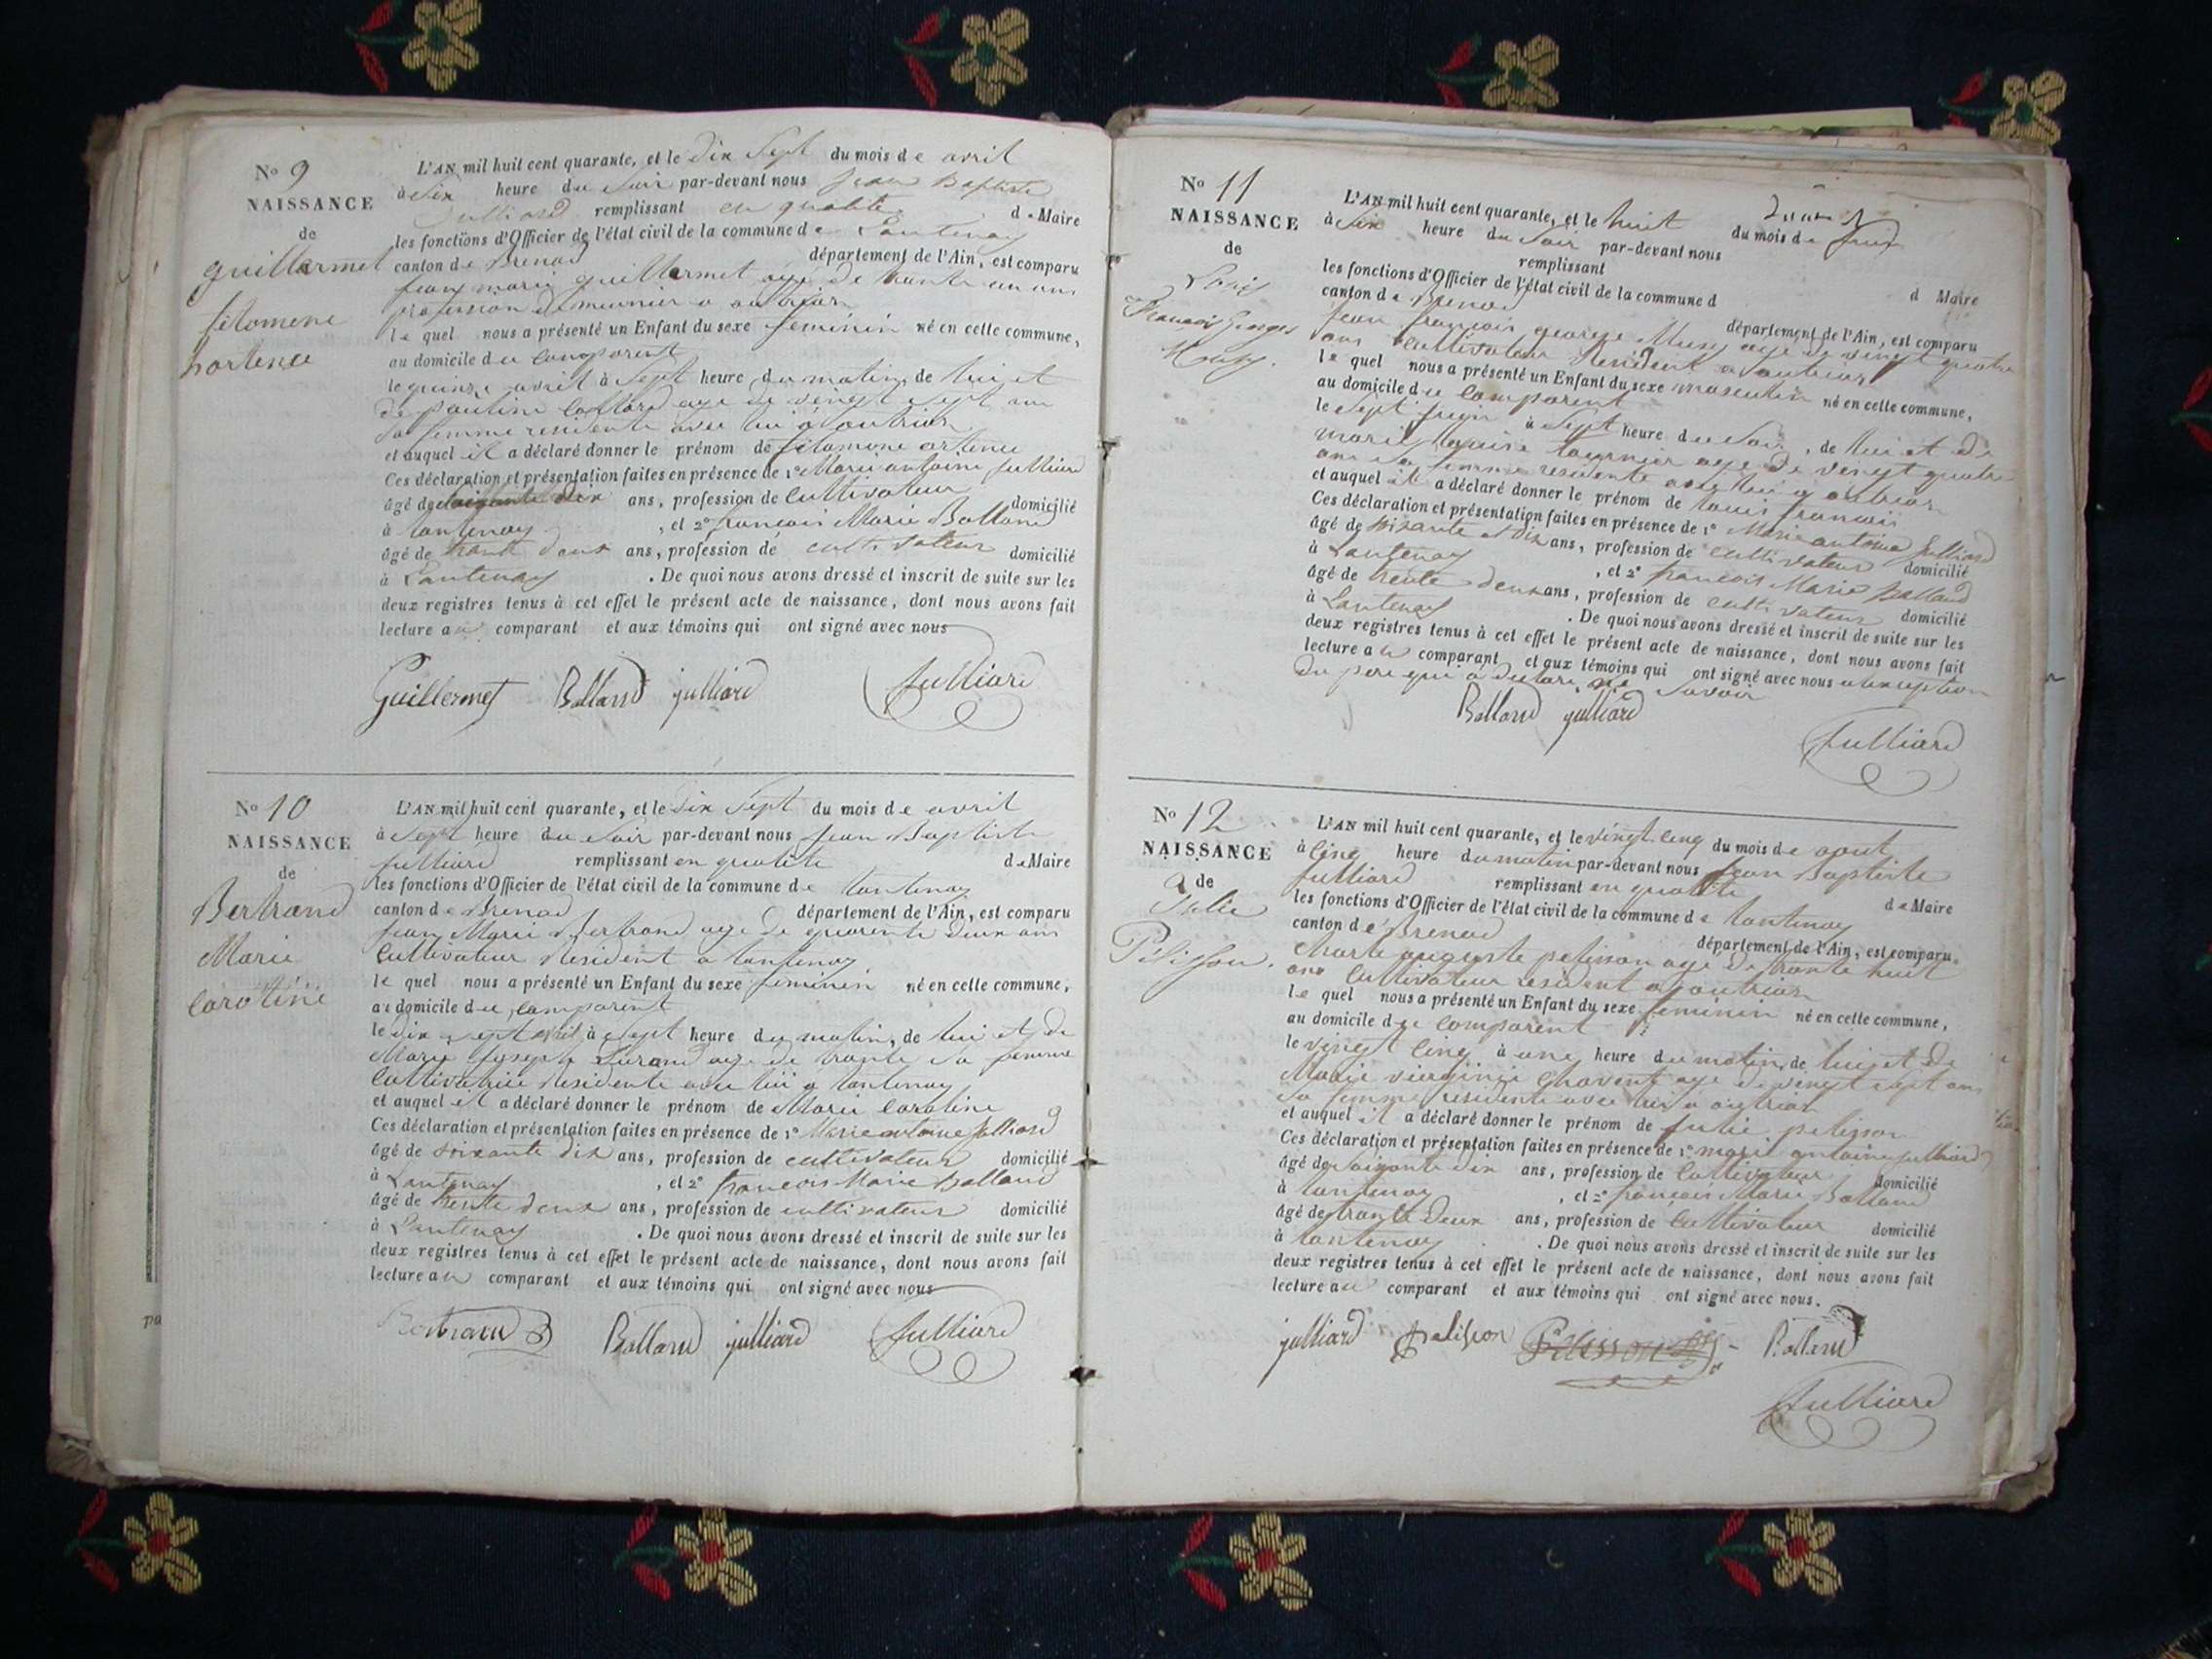 No 9
NAISSANCE
de
guillermet
filomene
hortence
L'AN mil huit cent quarante, et le dix Sept du mois de avril
à Six heure du Soir par-devant nous Jean Baptiste
Julliard remplissant en qualité de Maire
les fonctions d'Officier de l'état civil de la commune de Lantenay
canton de Brenod département de l'Ain, est comparu
jean marie guillermet agé de trante un ans
profession de meunier a outriar
le quel nous a présenté un Enfant du sexe feminin né en cette commune,
au domicile du comparent
le quinze avril à Sept heure du matin, de lui et
de pauline agé de vengt Sept ans
sa femme residente avec lui a outriar
et auquel il a déclaré donner le prénom de filomene ortence
Ces déclaration et présentation faites en présence de 1° Marie antoine julliard
âgé de soixante dix ans, profession de cultivateur domicilié
à lantenay, et 2° francois Marie Balland
âgé de trante deux ans, profession de cultivateur domicilié
à Lantenay. De quoi nous avons dressé et inscrit de suite sur les
deux registres tenus à cet effet le présent acte de naissance, dont nous avons fait
lecture au comparant et aux témoins qui ont signé avec nous
Guillermet Balland julliard Julliard
No 10
NAISSANCE
de
Bertrand
Marie
Caroline
L'AN mil huit cent quarante, et le dix Sept du mois de avril
à Sept heure du Soir par-devant nous Jean Baptiste
julliard remplissant en qualité de Maire
les fonctions d'Officier de l'état civil de la commune de lantenay
canton de Brenod département de l'Ain, est comparu
jean Marie Bertrand age de quarente deux ans
Cultivateur résident a lantenay
le quel nous a présenté un Enfant du sexe feminin né en cette commune,
au domicile du comparent
le dix sept avril à Sept heure du matin, de lui et de
Marie josephe age de trante sa femme
Cultivatrice résidente avec lui a lantenay
et auquel il a déclaré donner le prénom de Marie Caroline
Ces déclaration et présentation faites en présence de 1° Marie antoine Julliard
âgé de soixante dix ans, profession de cultivateur domicilié
à Lantenay, et 2° francois Marie Balland
âgé de trente deux ans, profession de cultivateur domicilié
à Lantenay. De quoi nous avons dressé et inscrit de suite sur les
deux registres tenus à cet effet le présent acte de naissance, dont nous avons fait
lecture au comparant et aux témoins qui ont signé avec nous
Bertrand Balland julliard Julliard
No 11
NAISSANCE
de
Louis
francois Georges
L'AN mil huit cent quarante, et le huit du mois de juin
à Six heure du Soir par-devant nous
remplissant d Maire
les fonctions d'Officier de l'état civil de la commune d
canton de Brenod département de l'Ain, est comparu
jean francois george age de vengt quatre
ans Cultivateur résident a outriar
le quel nous a présenté un Enfant du sexe masculin né en cette commune,
au domicile du comparent
le Sept juin à Sept heure du Soir, de lui et de
marie louise tournier age de vengt quatre
ans sa femme residente avec lui a outriar
et auquel il a déclaré donner le prénom de louis francois
Ces déclaration et présentation faites en présence de 1° Marie antoine Julliard
âgé de soixante et dix ans, profession de cultivateur domicilié
à Lantenay, et 2° francois Marie Balland
âgé de trente deux ans, profession de cultivateur domicilié
à Lantenay. De quoi nous avons dressé et inscrit de suite sur les
deux registres tenus à cet effet le présent acte de naissance, dont nous avons fait
lecture au comparant et aux témoins qui ont signé avec nous a lexception
du pere qui a declare ne savoir
Balland julliard
Julliard
No 12
NAISSANCE
de
Julie
Pélisson.
L'AN mil huit cent quarante, et le vingt cinq du mois de aout
à cinq heure du matin par-devant nous Jean Baptiste
julliard remplissant en qualité de Maire
les fonctions d'Officier de l'état civil de la commune de lantenay
canton de Brenod département de l'Ain, est comparu
Charle auguste pelisson age de trante huit
ans Cultivateur résident a outriar
le quel nous a présenté un Enfant du sexe feminin né en cette commune,
au domicile du comparent
le vingt cinq à une heure du matin, de lui et de
Marie vierginie Chavent age de vengt sept ans
sa femme residente avec lui a outriar
et auquel il a déclaré donner le prénom de julie pelisson
Ces déclaration et présentation faites en présence de 1° marie antoine julliard
âgé de Soixante dix ans, profession de Cultivateur domicilié
à lantenay, et 2° francois Marie Balland
âgé de trante deux ans, profession de Cultivateur domicilié
à lantenay. De quoi nous avons dressé et inscrit de suite sur les
deux registres tenus à cet effet le présent acte de naissance, dont nous avons fait
lecture au comparant et aux témoins qui ont signé avec nous.
julliard pelisson Balland
Julliard